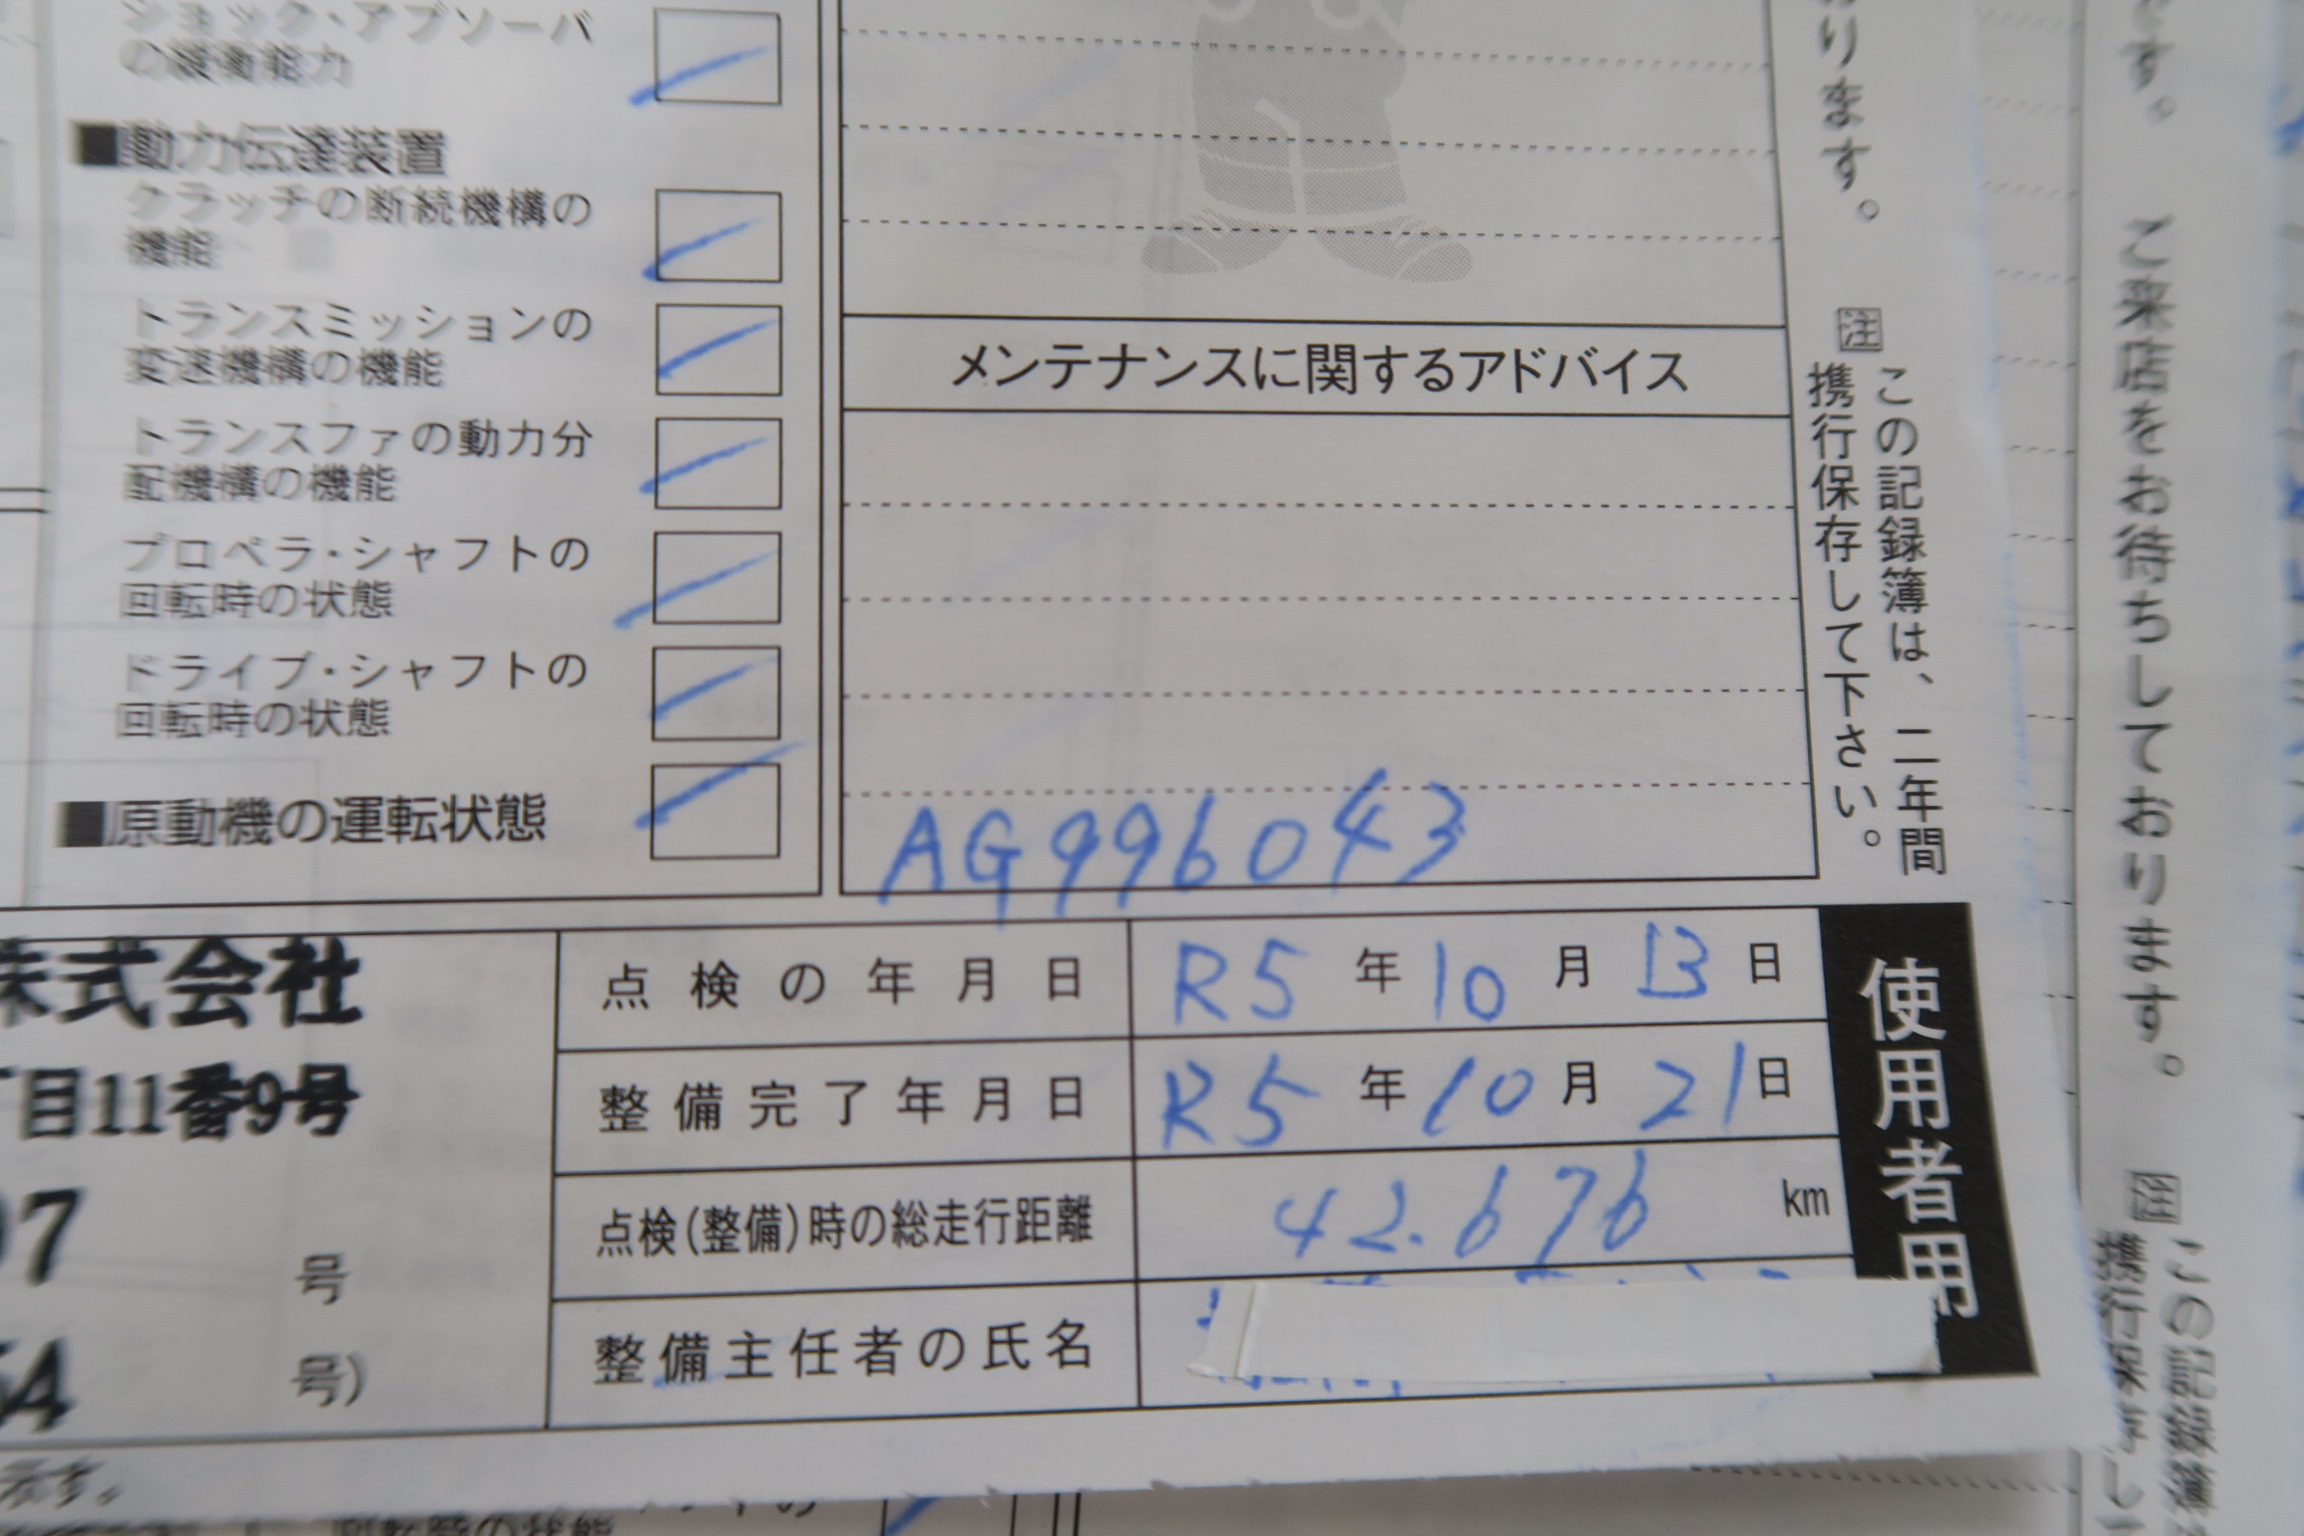 ショック・アブソーバ
の緩衝能力
■動力伝達装置
クラッチの断続機構の
機能
トランスミッションの
変速機構の機能
トランスファの動力分
配機構の機能
プロペラ・シャフトの
回転時の状態
ドライブ・シャフトの
回転時の状態
■原動機の運転状態
メンテナンスに関するアドバイス
AG996043
ります。
注
この記録簿は、二年間
携行保存して下さい。
株式会社
丁目11番9号
97 号
54 号)
点検の年月日 R5年10月13日
整備完了年月日 R5年10月21日
点検(整備)時の総走行距離 42.676 km
整備主任者の氏名
使用者用
示す。
です。 ご来店をお待ちしております。
注
この記録簿
携行保存し
回転時の状態